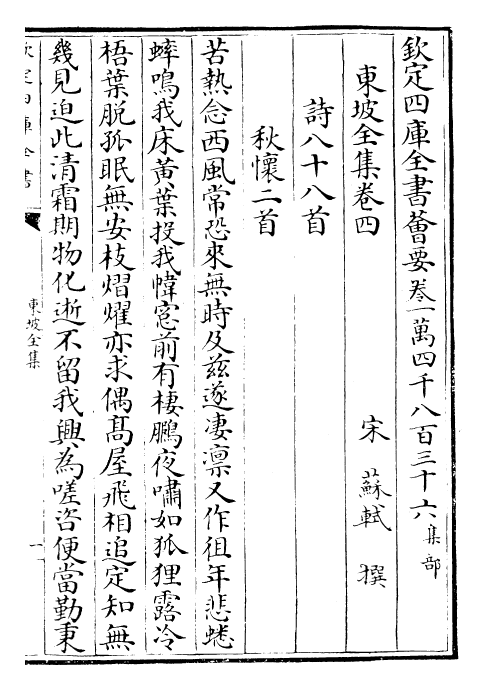 欽定四庫全書薈要卷一萬四千八百三十六集部
東坡全集卷四
宋蘇軾撰
詩八十八首
秋懷二首
苦熱念西風常恐來無時及茲遂淒凛又作徂年悲蟋
蟀鳴我床黃葉投我幃窓前有棲鵬夜嘯如狐狸露冷
梧葉脱孤眠無安枝熠燿亦求偶髙屋飛相追定知無
幾見迫此清霜期物化逝不留我興為嗟咨便當勤秉
欽定四庫全書
東坡全集
一